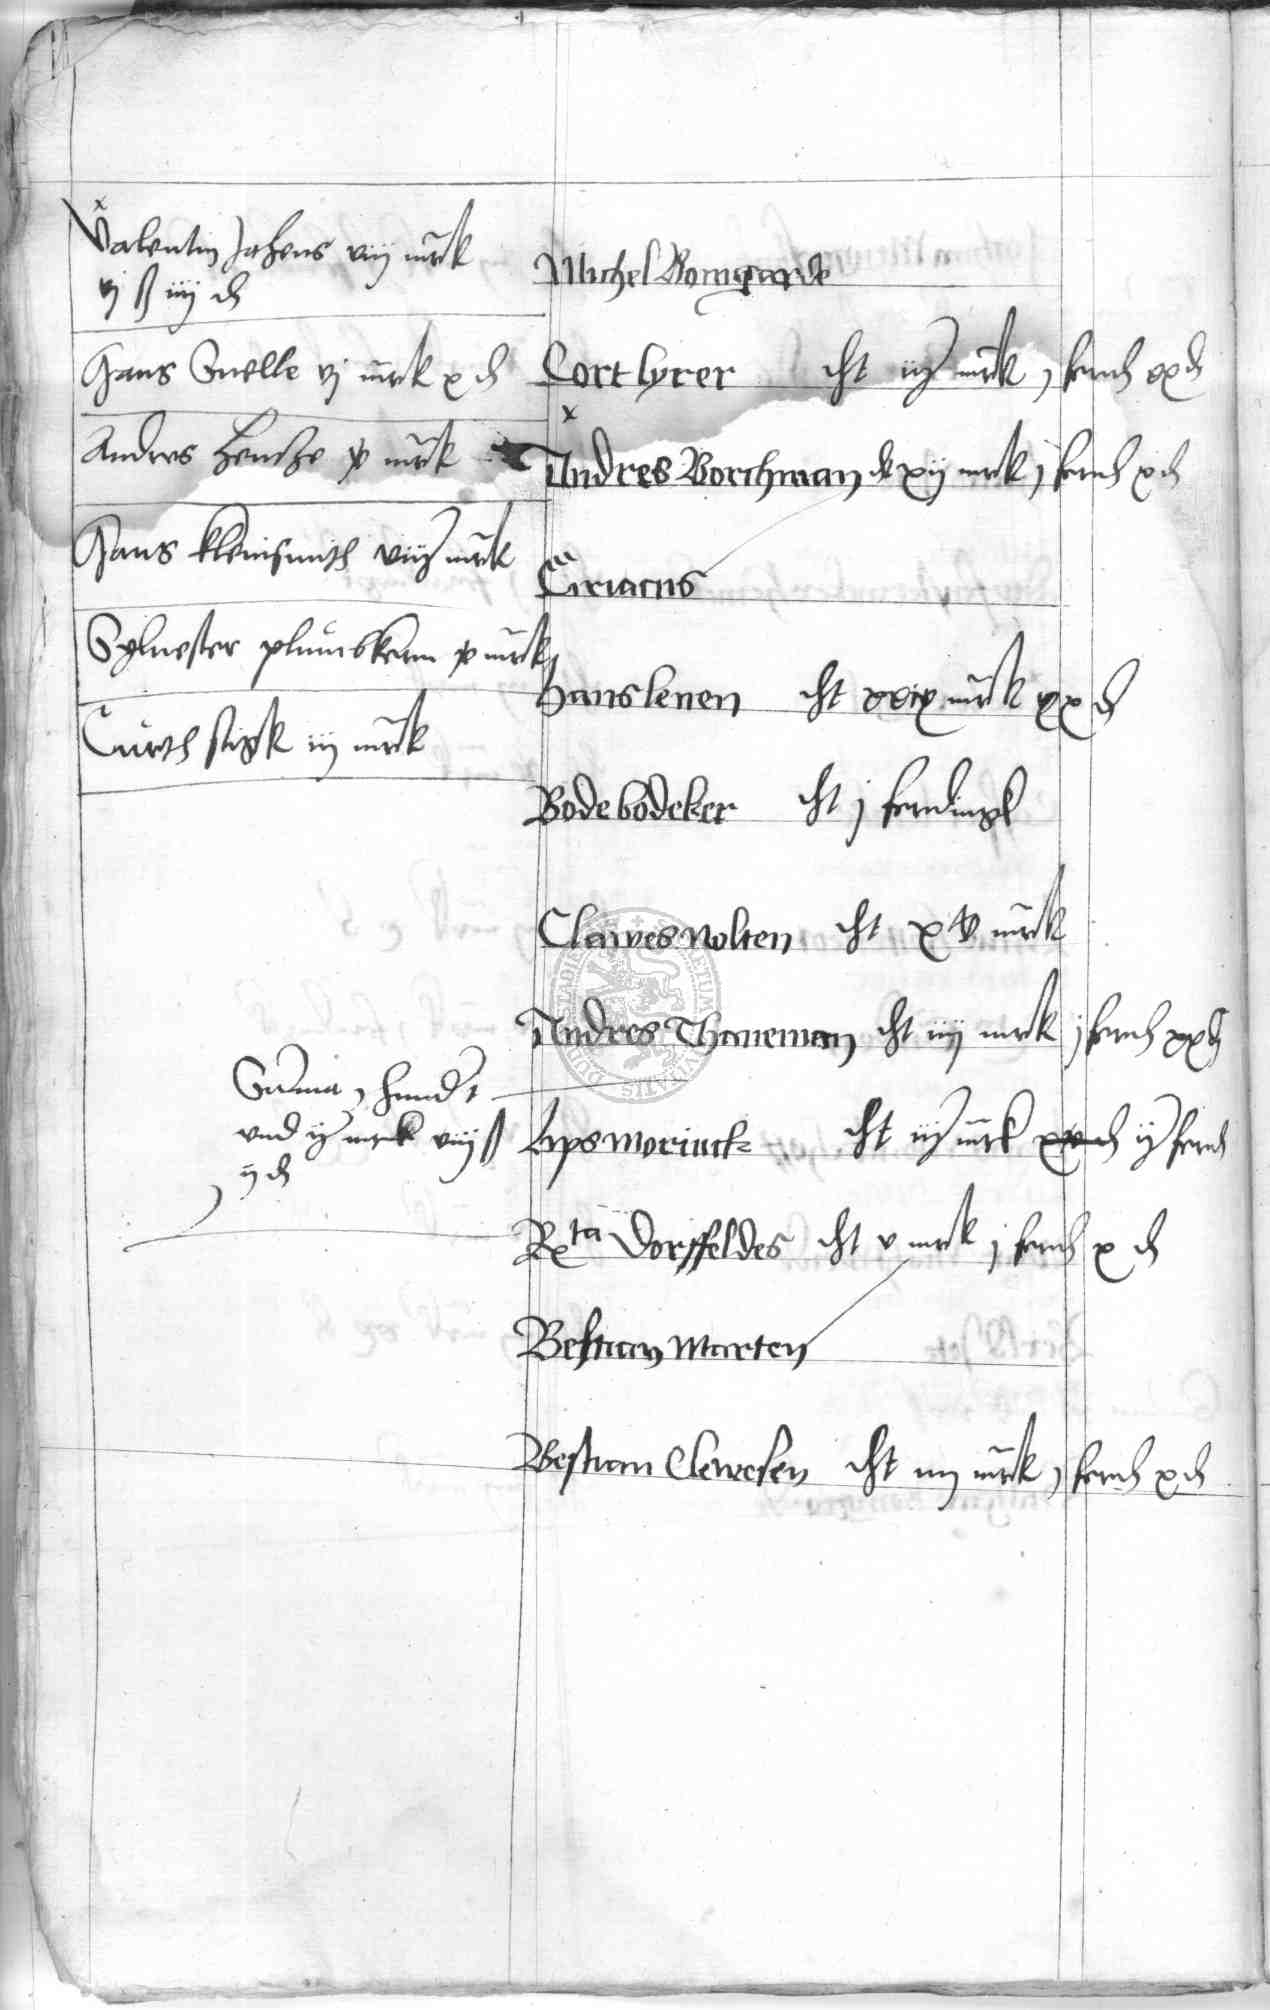 Valentin Jahens viij mrk
vj ß iiij d
Hans Snelle vj mrk x d
Andres Hensze mrk
Hans kleinsmith mrk
Syluester mrk
Curth iij mrk
Summa j hundert
vnd mrk viij ß
ij d
Michel Bomgarde
Cort lyrer mrk j ferd xx d
Andres Borchman de xij mrk j ferd x d
Ciriacus
Hans lenen cht xxix mrk xx d
Bode bodeker cht j ferdingk
Clawes Nolten cht xv mrk
Andres Thaneman cht iiij mrk j ferd xx d
Lips Morinck cht mrk ferd
Rxta Dorffeldes cht v mrk j ferd x d
Bestian Marten
Bestian Clewesen cht iiij mrk j ferd x d